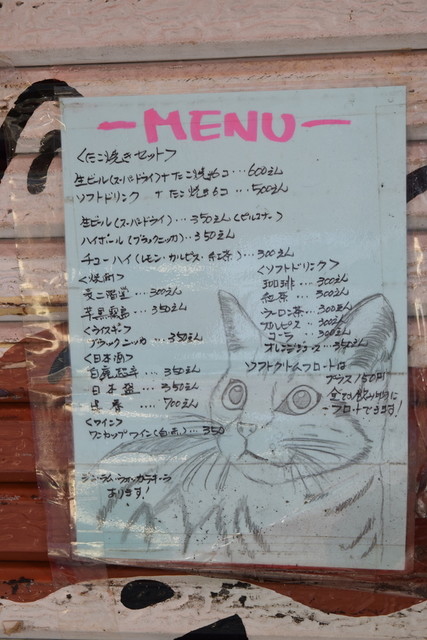 ーMENUー
<たこ焼きセット>
生ビール(スーパードライ)+たこ焼き6コ…600えん
ソフトドリンク + たこ焼き6コ…500えん
生ビール(スーパードライ)…350えん(ピルスナー)
ハイボール(ブラックニッカ)…350えん
チューハイ(レモン・カルピス・紅茶)…300えん
<焼酎>
麦二階堂…300えん
芋黒霧島…350えん
<ウイスキー>
ブラックニッカ…350えん
<日本酒>
白鹿
日本盛…350えん
…700えん
<ワイン>
ワンカップワイン(白・赤)…350
ジン・ラム・ウォッカ
あります!
<ソフトドリンク>
珈琲…300えん
紅茶…300えん
ウーロン茶…300えん
カルピス…300えん
コーラ…300えん
オレンジジュース…350えん
ソフトクリームフロートは
プラス150円
全ての飲み物に
フロートできます!